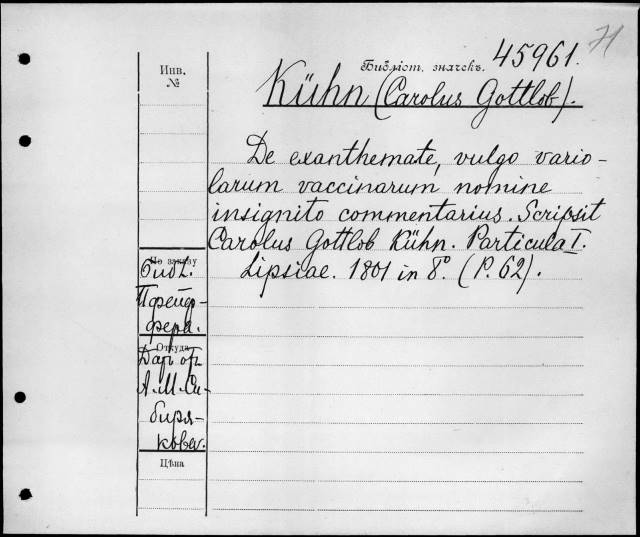 71
Инв.
№
Библіот. значекъ.
45961.
Kühn (Carolus Gottlob).
De exanthemate, vulgo vario-
larum vaccinarum nomine
insignito commentarius. Scripsit
Carolus Gottlob Kühn. Particula I.
Lipsiae. 1801 in 8°. (P. 62).
По заказу
Библ.
Пфейф-
фера.
Откуда
Даръ от
А. М. Си-
биря-
кова.
Цѣна